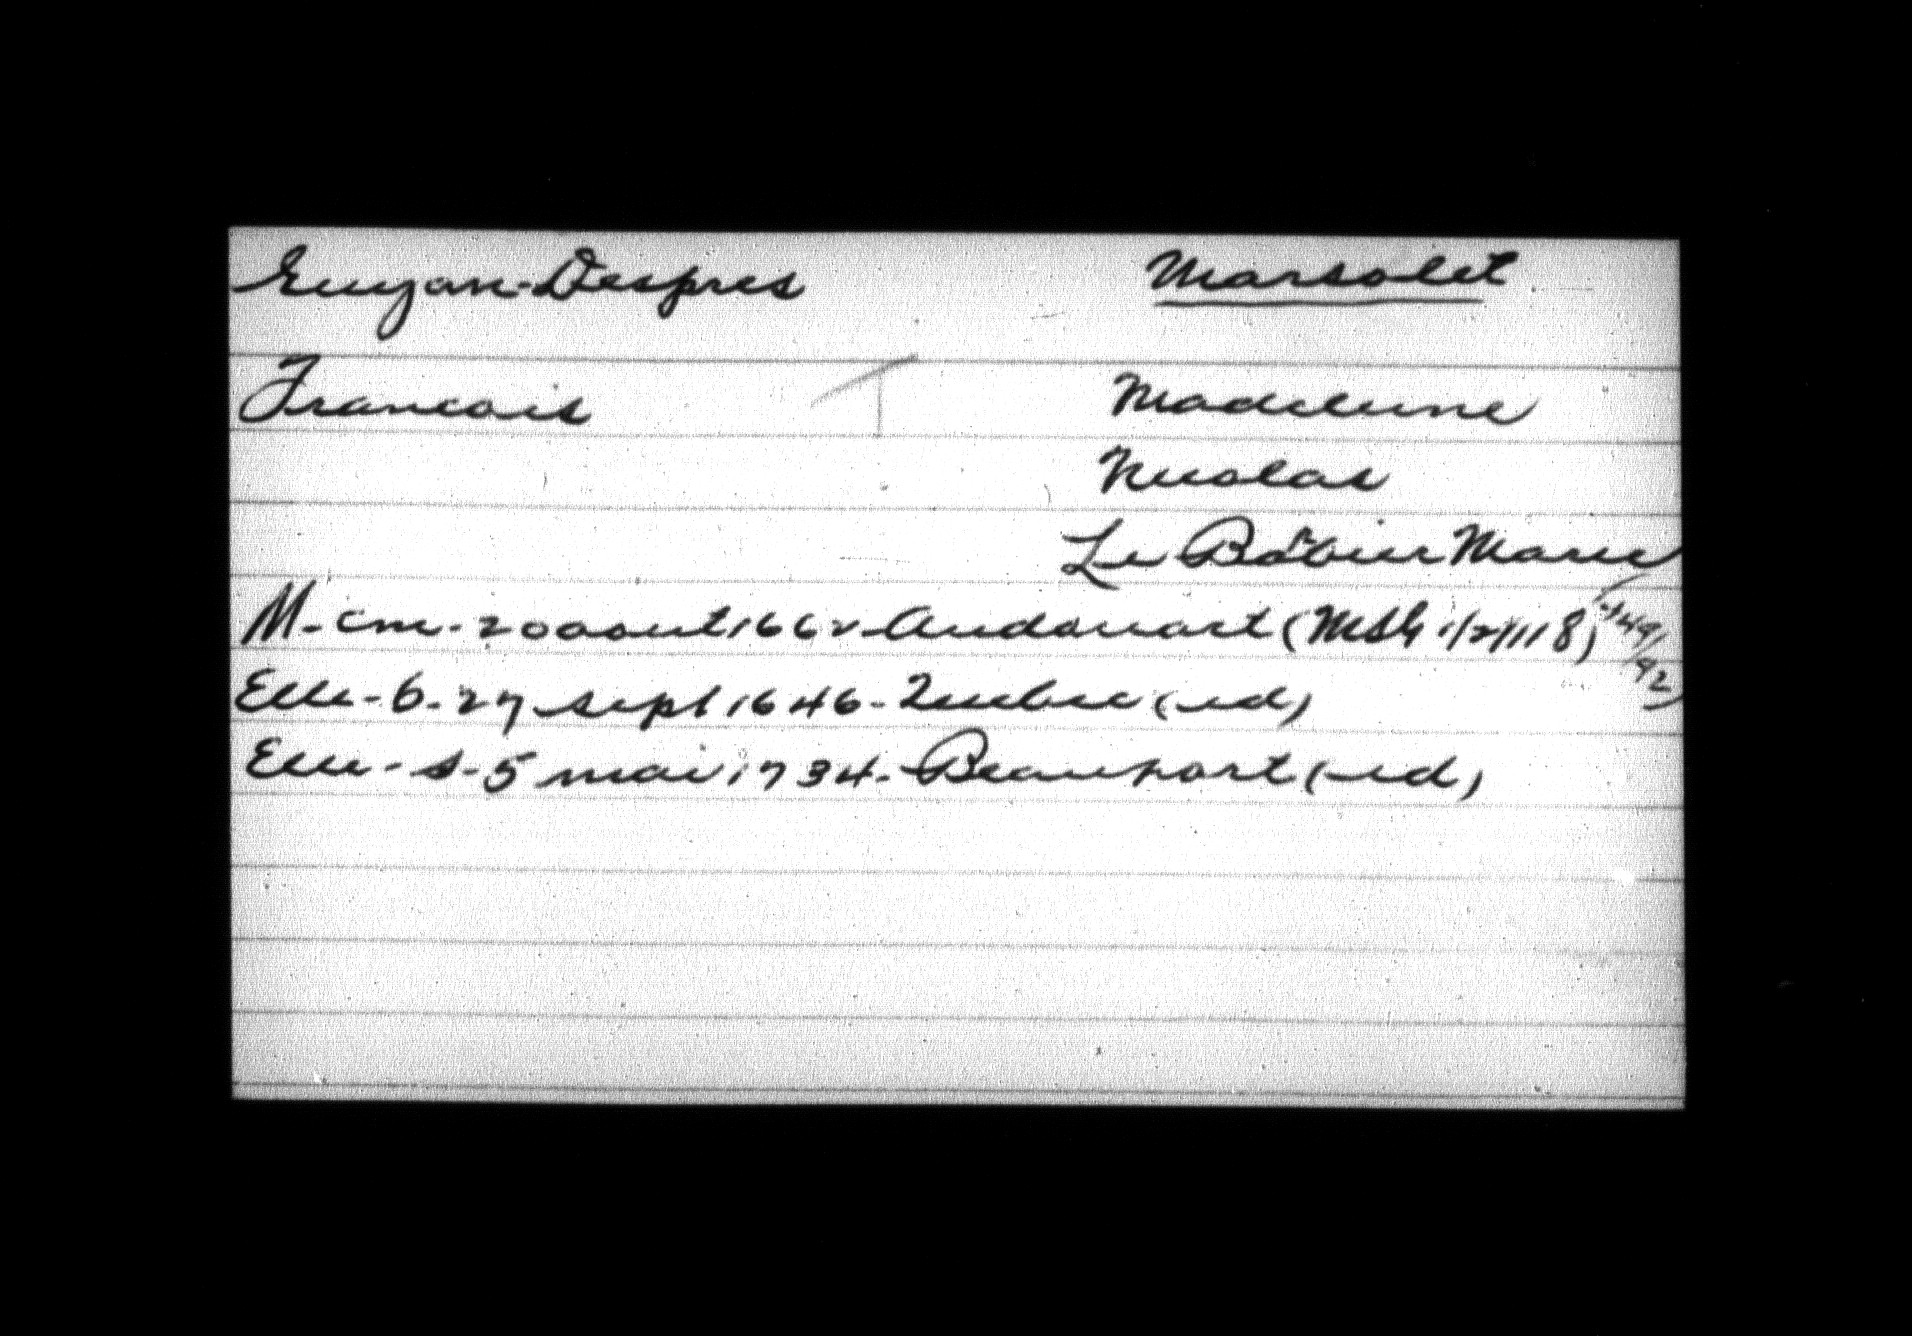 Guyon-Despres Marsolet
Francois Madeleine
Nicolas
Le Barbier Marie
M-cm-20 aout 1662-Audouart (MSG 1/2/118)
Elle-b-27 sept 1646-Quebec (id)
Elle-s-5 mai 1734-Beauport (id)